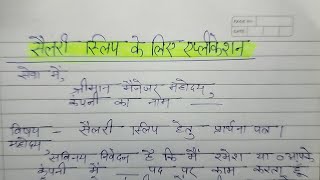 सैलरी स्लिप के लिए एप्लीकेशन
सेवा में,
श्रीमान मैनेजर महोदय,
कंपनी का नाम
विषय - सैलरी स्लिप हेतु प्रार्थना पत्र।
महोदय
सविनय निवेदन है कि मैं रमेश यादव आपके
कंपनी में पद पर काम करता हूँ